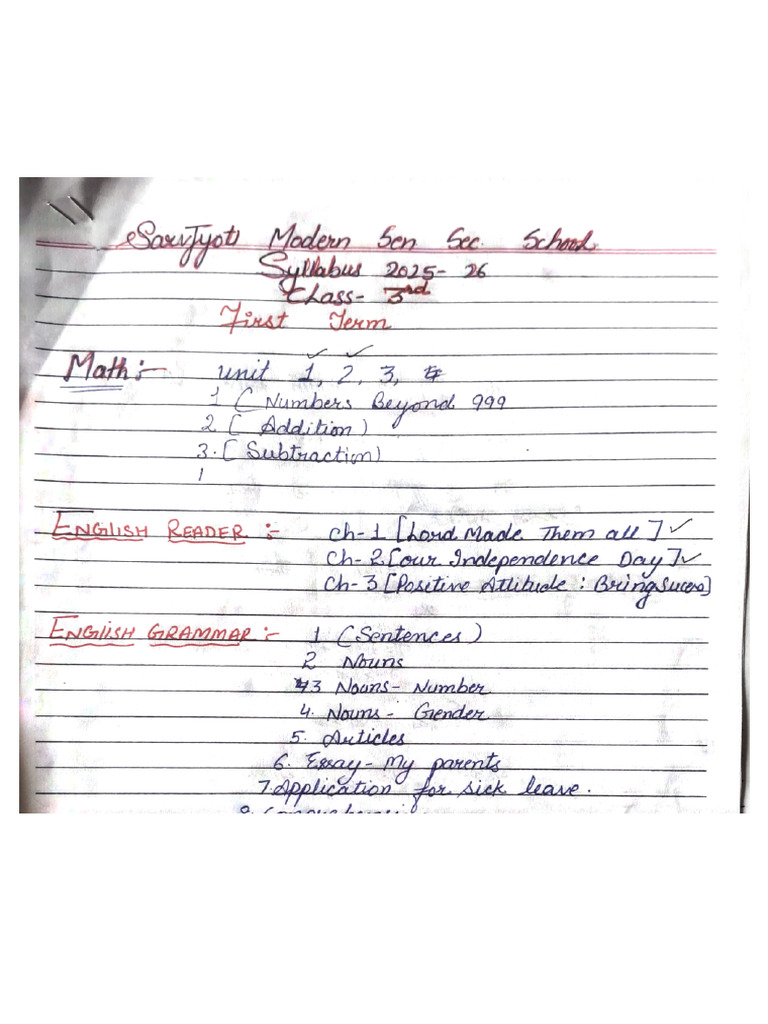 Sarvjyoti Modern Sen Sec. School
Syllabus 2025-26
Class- 3rd
First Term
Math:- unit 1, 2, 3, 4
1 ( Numbers Beyond 999
2 [ Addition )
3. [ Subtraction)
1
ENGlISH READER :- Ch-1 [Lord Made Them all ] ✓
Ch-2 [our Independence Day] ✓
Ch-3 [Positive Attitude : Bring Sucess]
ENGlISH GRAMMAR :- 1 ( Sentences )
2 Nouns
3 Nouns- Number
4. Nouns- Gender
5. Articles
6. Essay- My parents
7. Application for sick leave.